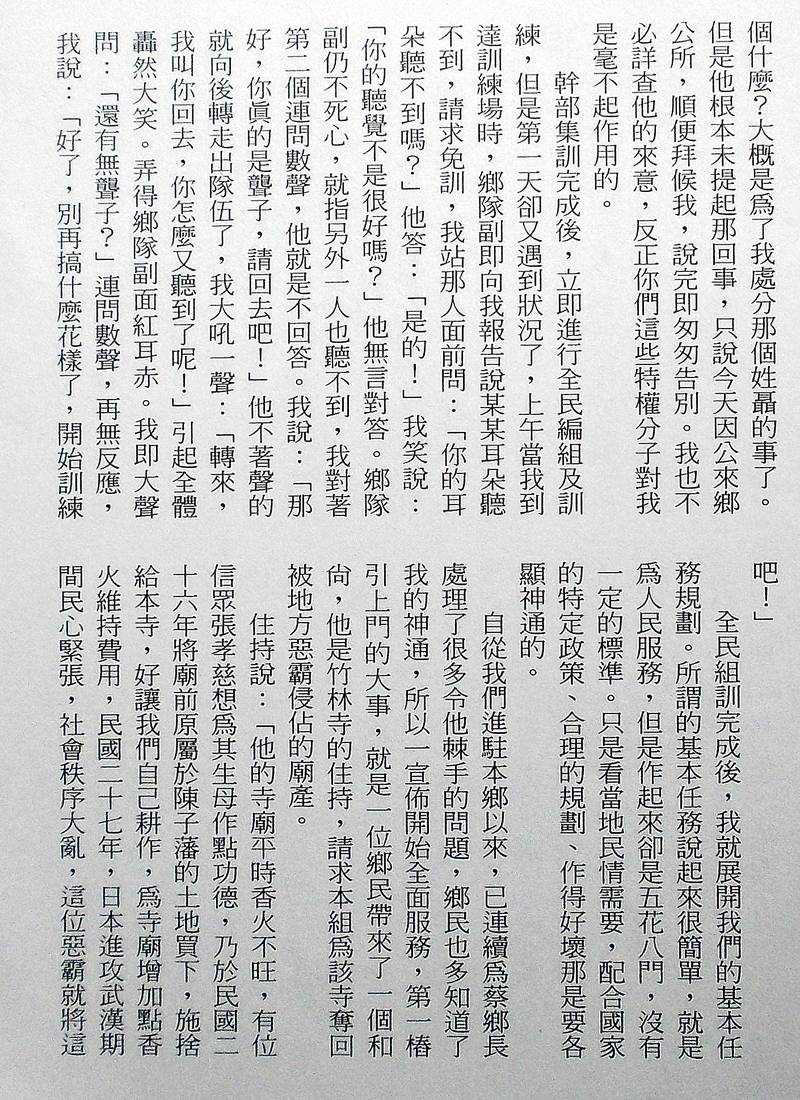 個什麼？大概是為了我處分那個姓聶的事了。
但是他根本未提起那回事，只說今天因公來鄉
公所，順便拜候我，說完即匆匆告別。我也不
必詳查他的來意，反正你們這些特權分子對我
是毫不起作用的。
幹部集訓完成後，立即進行全民編組及訓
練，但是第一天卻又遇到狀況了，上午當我到
達訓練場時，鄉隊副即向我報告說某某耳朵聽
不到，請求免訓，我站那人面前問：「你的耳
朵聽不到嗎？」他答：「是的！」我笑說：
「你的聽覺不是很好嗎？」他無言對答。鄉隊
副仍不死心，就指另外一人也聽不到，我對著
第二個連問數聲，他就是不回答。我說：「那
好，你真的是聾子，請回去吧！」他不著聲的
就向後轉走出隊伍了，我大吼一聲：「轉來，
我叫你回去，你怎麼又聽到了呢！」引起全體
轟然大笑。弄得鄉隊副面紅耳赤。我即大聲
問：「還有無聾子？」連問數聲，再無反應，
我說：「好了，別再搞什麼花樣了，開始訓練
吧！」
全民組訓完成後，我就展開我們的基本任
務規劃。所謂的基本任務說起來很簡單，就是
為人民服務，但是作起來卻是五花八門，沒有
一定的標準。只是看當地民情需要，配合國家
的特定政策、合理的規劃、作得好壞那是要各
顯神通的。
自從我們進駐本鄉以來，已連續為蔡鄉長
處理了很多令他棘手的問題，鄉民也多知道了
我的神通，所以一宣佈開始全面服務，第一樁
引上門的大事，就是一位鄉民帶來了一個和
尚，他是竹林寺的住持，請求本組為該寺奪回
被地方惡霸侵佔的廟產。
住持說：「他的寺廟平時香火不旺，有位
信眾張孝慈想為其生母作點功德，乃於民國二
十六年將廟前原屬於陳子藩的土地買下，施捨
給本寺，好讓我們自己耕作，為寺廟增加點香
火維持費用，民國二十七年，日本進攻武漢期
間民心緊張，社會秩序大亂，這位惡霸就將這